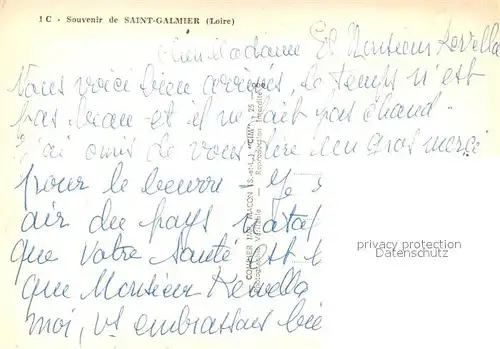 1 C - Souvenir de SAINT-GALMIER (Loire)
Chers Madame Et Monsieur Kervella
Nous voici bien arrivés, le temps n'est
pas beau et il ne fait pas chaud.
J'ai omis de vous dire un gros merci
pour le beurre -
air du pays
que votre santé est
que Monsieur Kervella
moi, vs embrassons bie
COMBIER IMP. MACON (S.-et-L.) "CIM"
Photographie Véritable — Reproduction Interdite
privacy protection
Datenschutz